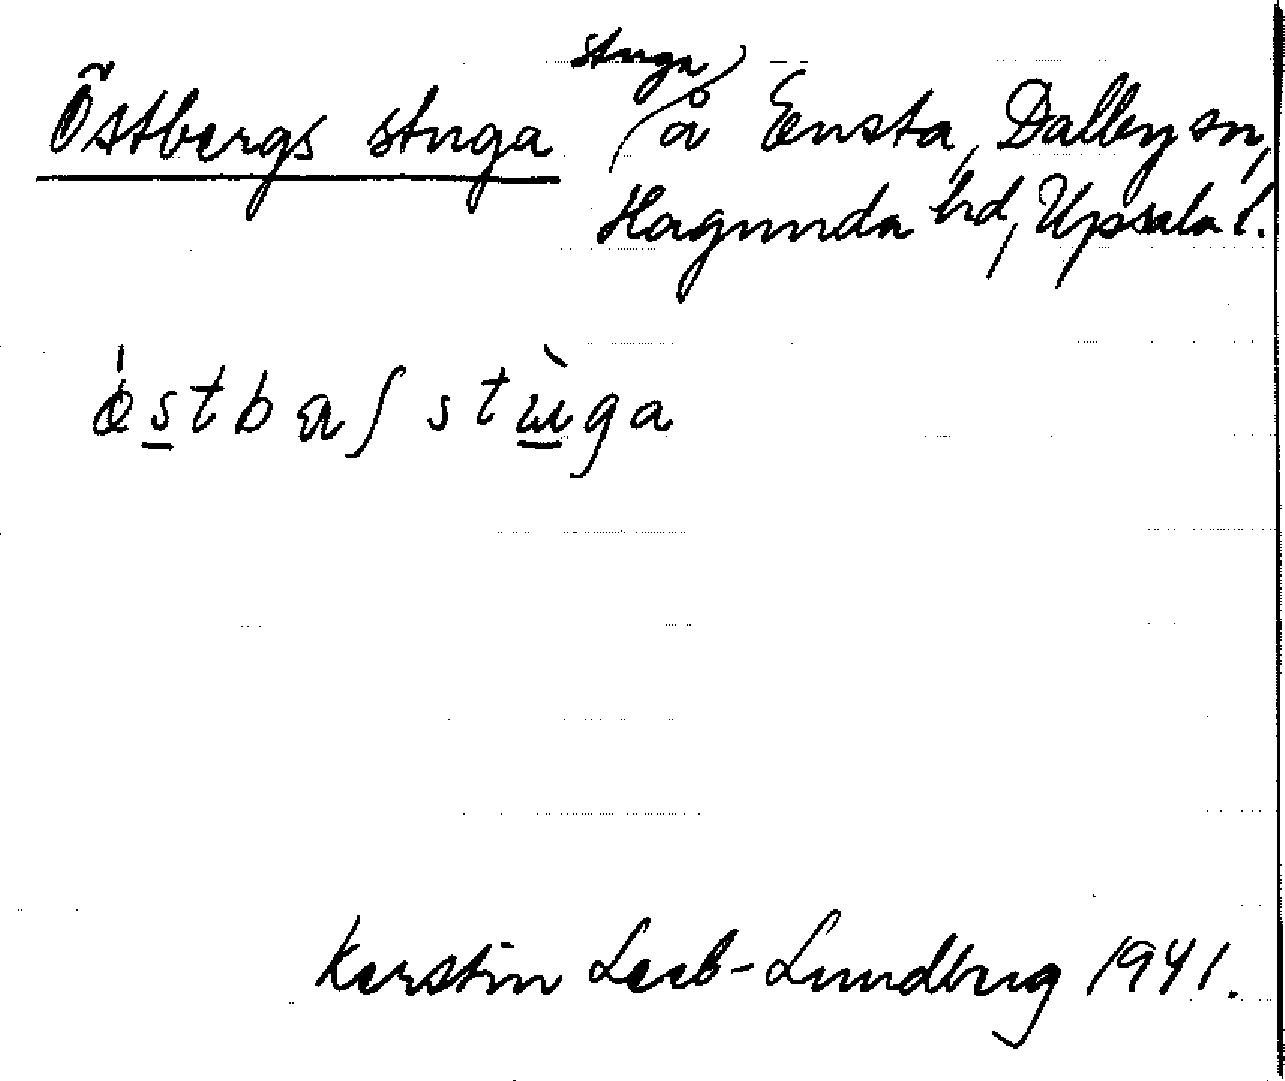 Östbergs stuga stuga å Ensta, Dalby sn,
Hagunda hd, Upsala l.
östbaʃ stɯ̀ga
Kerstin Leeb-Lundberg 1941.